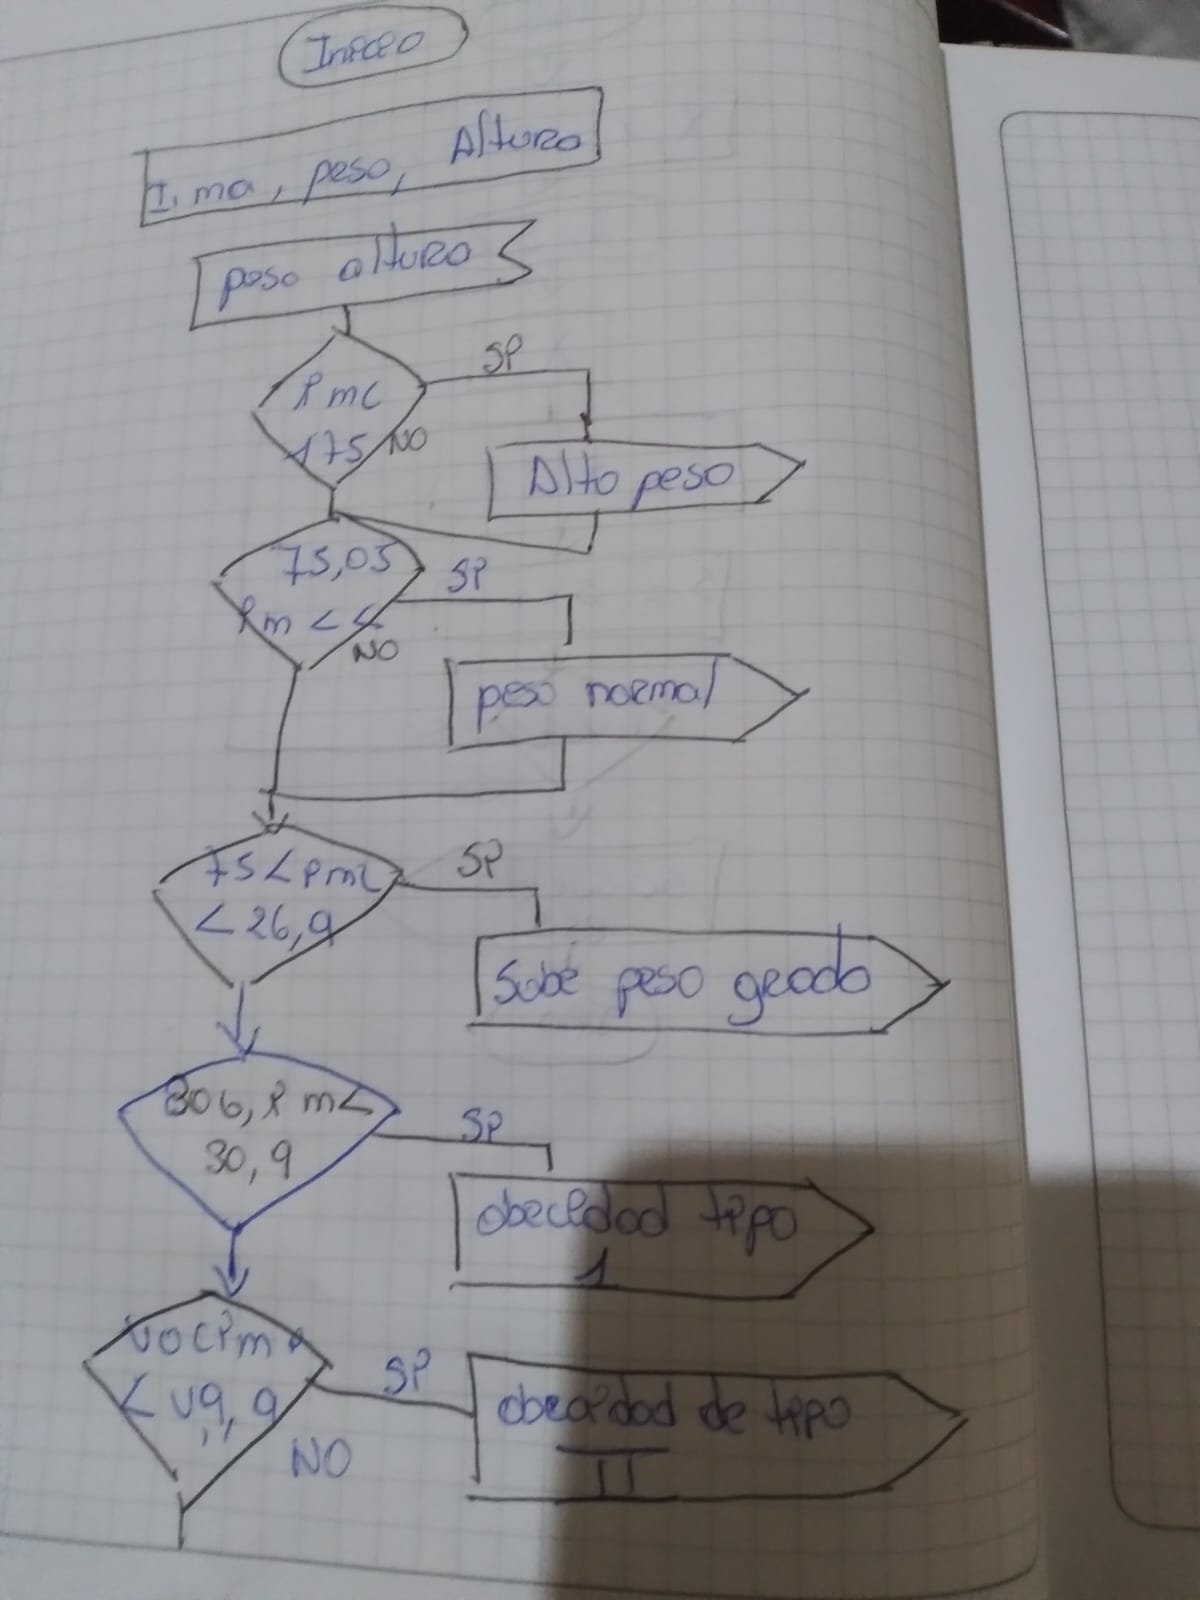 Inicio
I, ma, peso, Altura
peso altura
imc
175
SP
NO
Alto peso
75,05
im < <
SP
NO
peso normal
75 < imc
< 26,9
SP
Sobe peso grado
306, im <
30,9
SP
obecedad tipo
1
im
<
SP
NO
obecedad de tipo
II